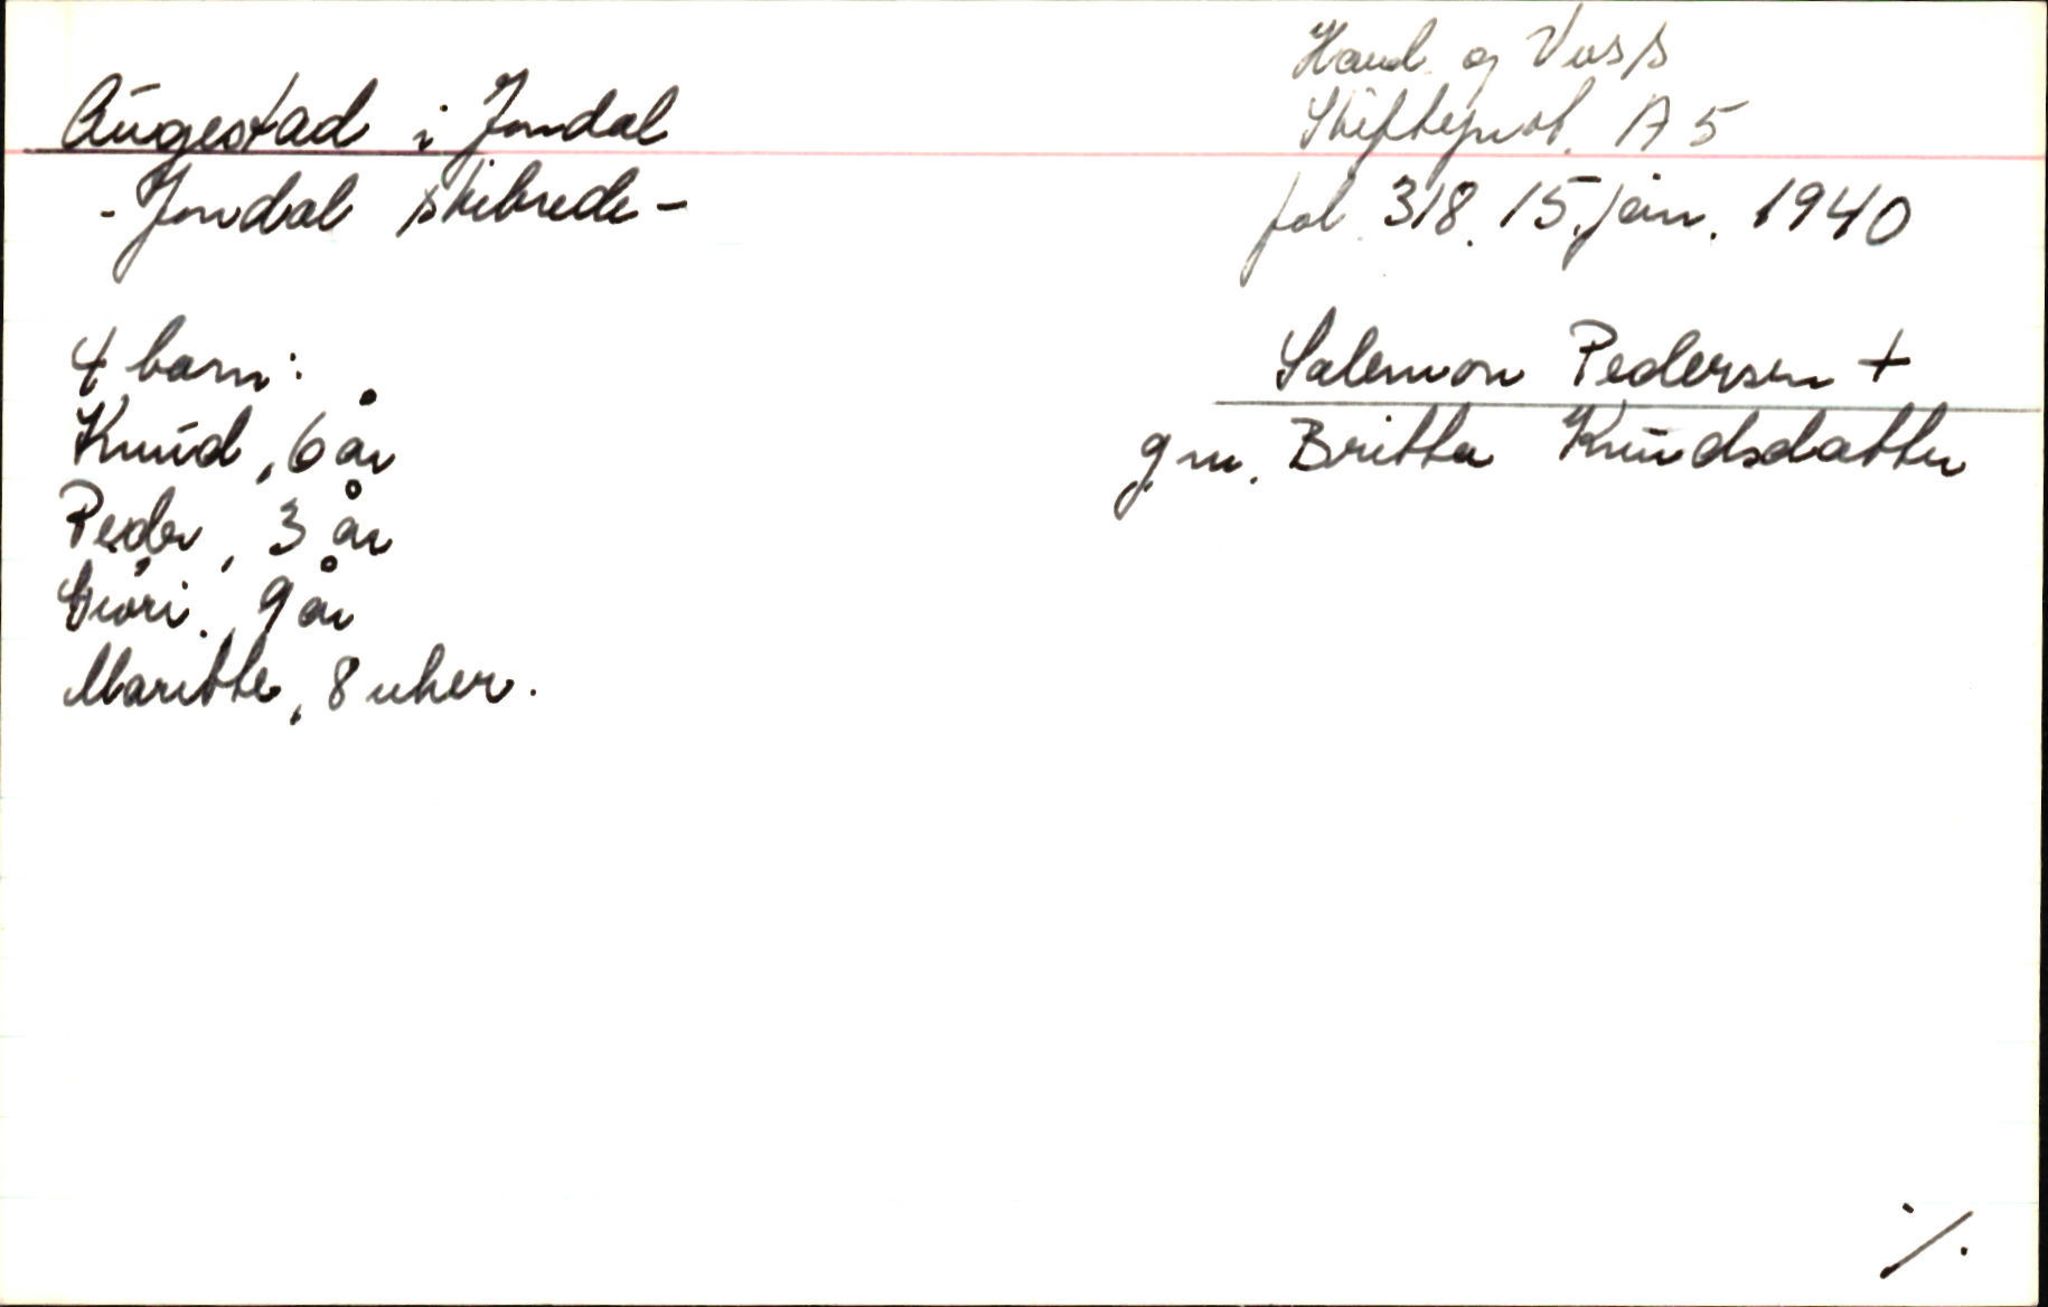 Augestad i Jondal
- Jondal skibrede -
Hard. og Voss
Skifteprot. A 5
fol. 318. 15. jan. 1940
4 barn:
Knud, 6 år
Peder, 3 år
Giøri, 9 år
Maritte, 8 uker.
Salemon Pedersen +
g.m. Britta Knudsdatter
./.